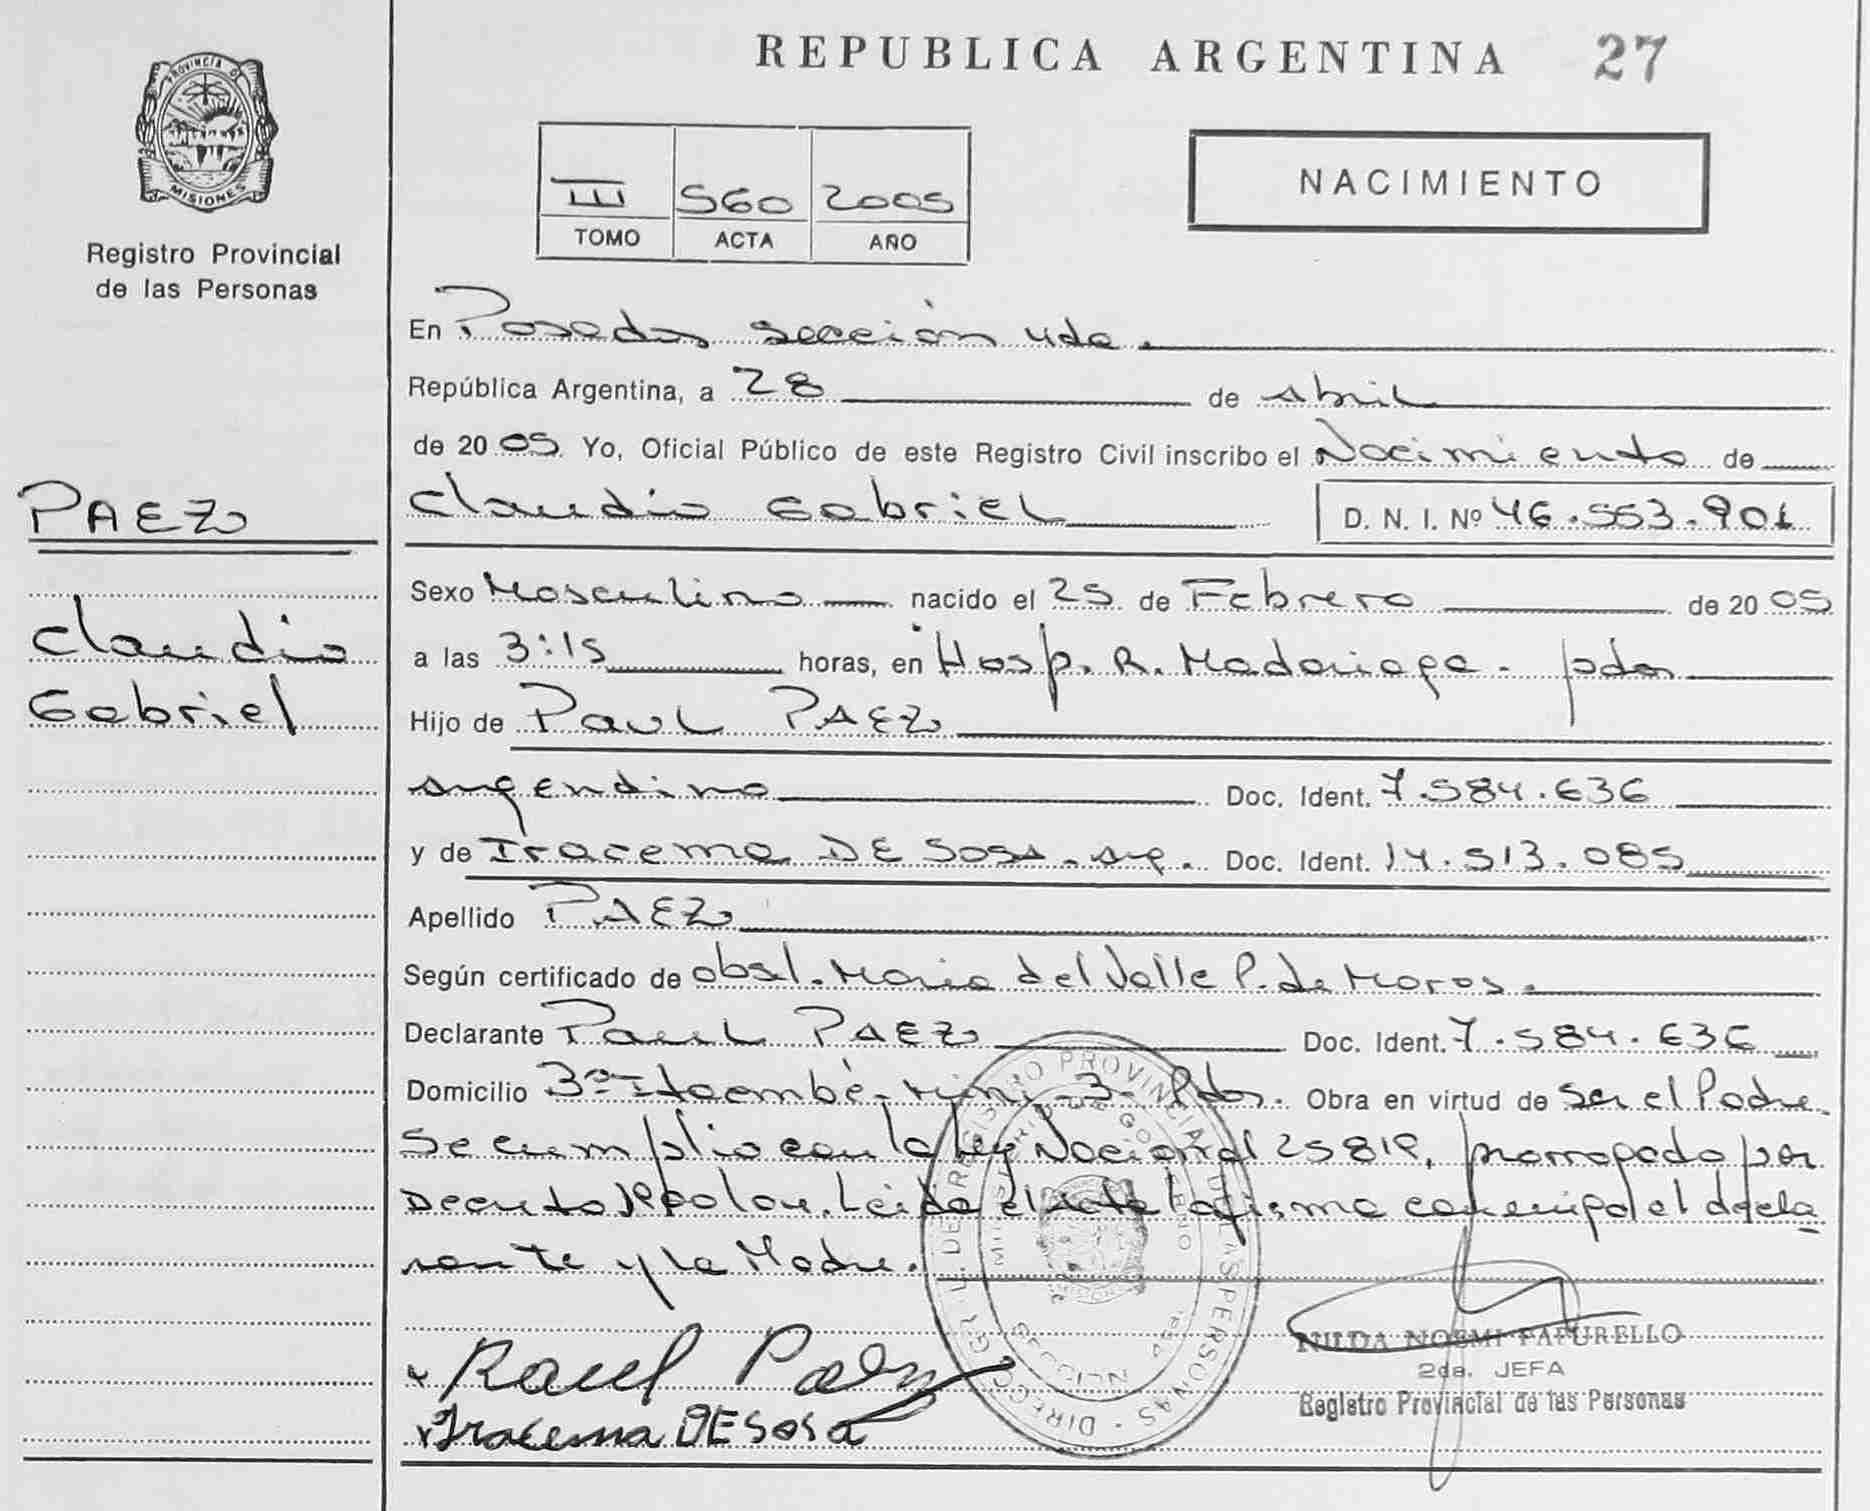 REPUBLICA ARGENTINA 27
PROVINCIA D MISIONES
Registro Provincial
de las Personas
III 560 2005
TOMO ACTA AÑO
NACIMIENTO
En Posadas sección 4da.
República Argentina, a 28 de Abril
de 2005 Yo, Oficial Público de este Registro Civil inscribo el Nacimiento de
Claudio Gabriel D. N. I. Nº 46.553.901
PAEZ
Claudio
Gabriel
Sexo Masculino nacido el 25 de Febrero de 2005
a las 3:15 horas, en Hosp. R. Madariaga - pdas
Hijo de Raul PAEZ
argentino Doc. Ident. 7.584.636
y de Iracema DE SOSA - arg. Doc. Ident. 14.513.085
Apellido PAEZ
Según certificado de obst. Maria del Valle P. de Moros.
Declarante Raul PAEZ Doc. Ident. 7.584.636
Domicilio Itaembé - mini - 3 - Pdas. Obra en virtud de ser el Padre.
Se cumplio con la ley Nacional 25819, prorrogado por
Decreto Leida el Acta la firma conmigo el decla
rante y la Madre.
Raul Paez
Iracema DE SOSA
NILDA NOEMI PAPURELLO
2da. JEFA
Registro Provincial de las Personas
DIRECC. GRAL. DE REGISTRO PROVINCIAL DE LAS PERSONAS